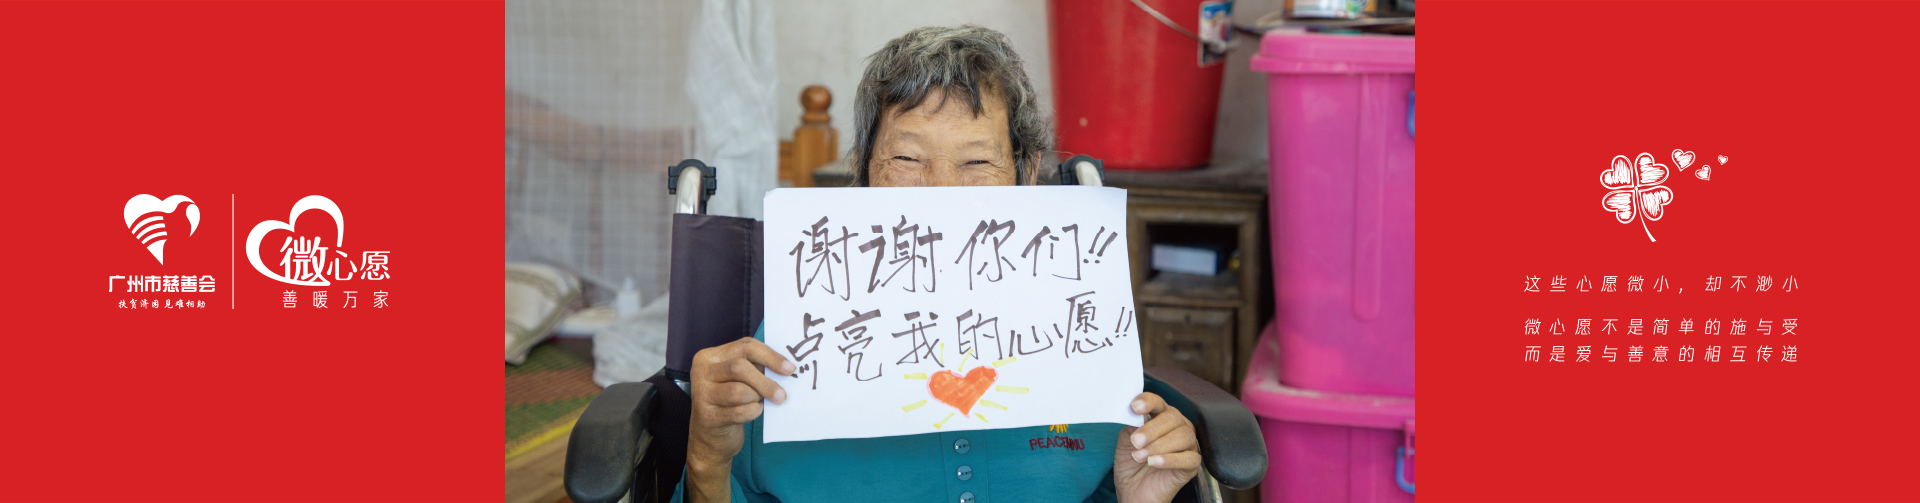 广州市慈善会
扶贫济困 见难相助
微心愿
善暖万家
谢谢你们!!
点亮我的心愿!!
这些心愿微小，却不渺小
微心愿不是简单的施与受
而是爱与善意的相互传递